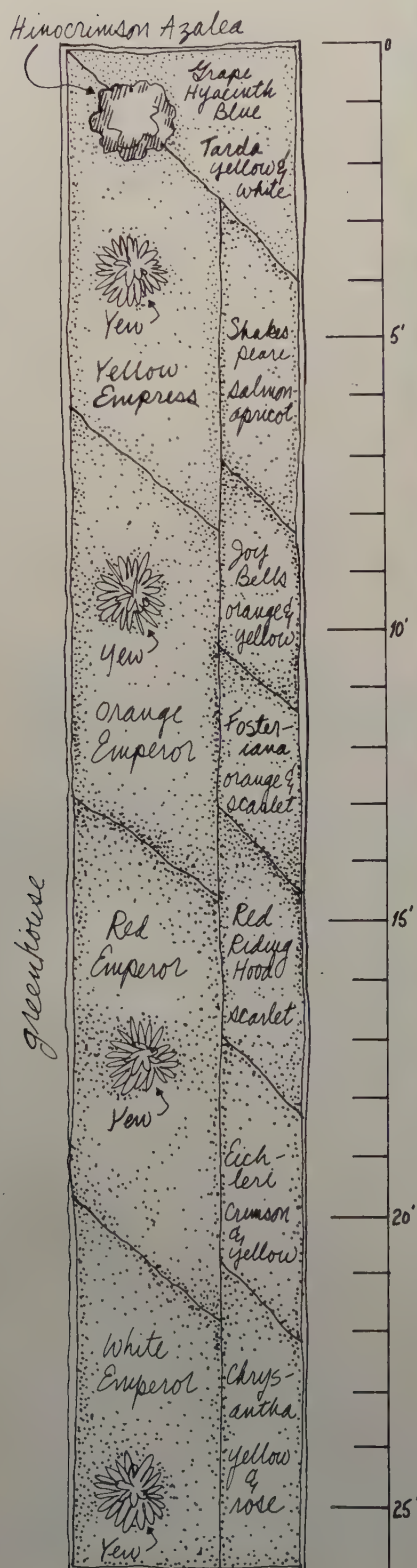 Hinocrimson Azalea
Grape
Hyacinth
Blue
Tarda
Yellow &
White
Yew
Yellow
Empress
Shakes-
peare
Salmon-
apricot
Joy
Bells
orange &
yellow
Yew
Orange
Emperor
Foster-
iana
orange &
scarlet
Red
Emperor
Red
Riding
Hood
scarlet
Yew
Eich-
leri
Crimson
&
yellow
White
Emperor
Chrys-
antha
yellow
&
rose
Yew
greenhouse
0
5'
10'
15'
20'
25'